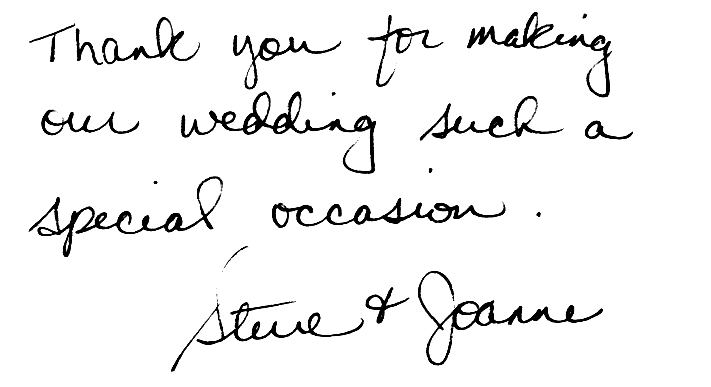 Thank you for making
our wedding such a
special occasion.
Steve & Joanne